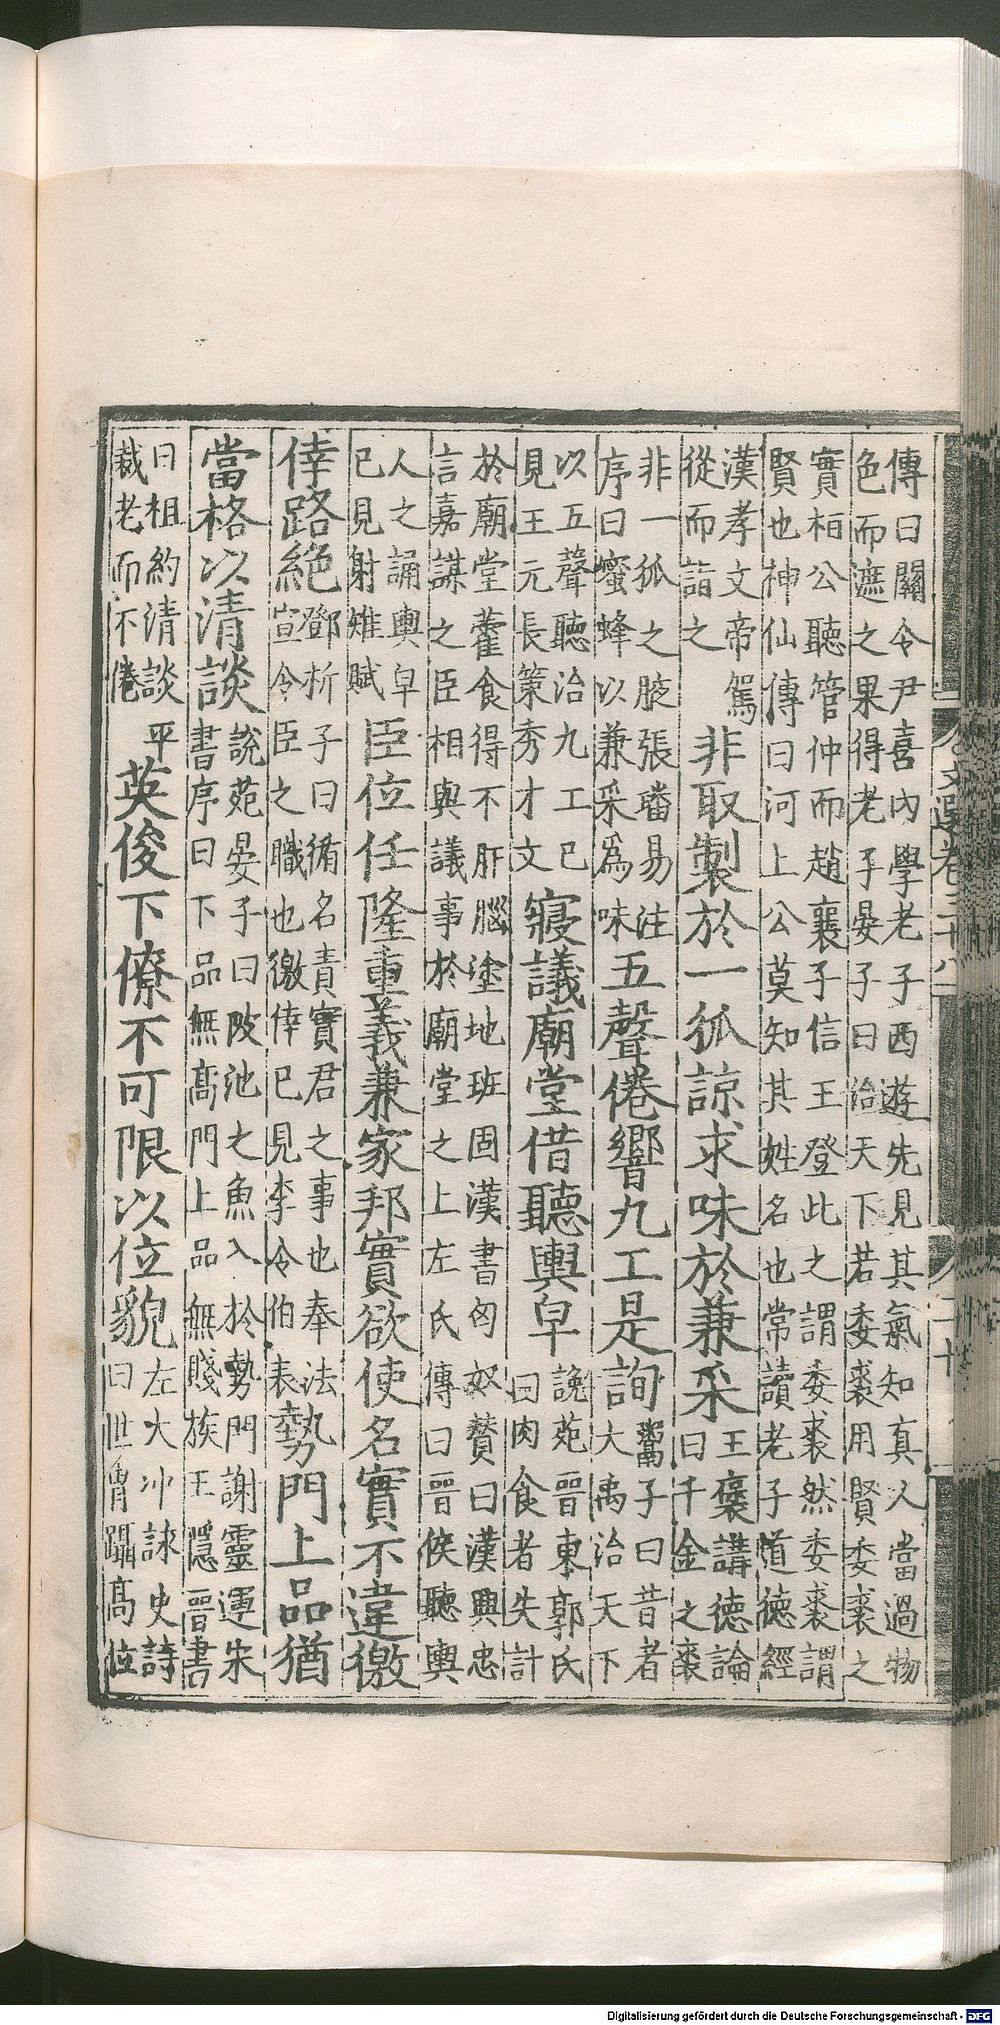 傳曰關令尹喜內學老子西遊先見其氣知真人當過物
色而遮之果得老子晏子曰治天下若委裘用賢委裘之
實桓公聽管仲而趙襄子信王登此之謂委裘然委裘謂
賢也神仙傳曰河上公莫知其姓名也常讀老子道德經
漢孝文帝駕
從而詣之
非取製於一狐諒求味於兼采
王襃講德論
曰千金之裘
非一狐之腋張璠易注
序曰蜜蜂以兼采爲味
五聲倦響九工是詢
鬻子曰昔者
大禹治天下
以五聲聽治九工已
見王元長策秀才文
寢議廟堂借聽輿皁
說苑晉東郭氏
曰肉食者失計
於廟堂藿食得不肝腦塗地班固漢書匈奴贊曰漢興忠
言嘉謀之臣相與議事於廟堂之上左氏傳曰晉侯聽輿
人之誦輿皁
已見射雉賦
臣位任隆重義兼家邦實欲使名實不違徼
倖路絶
鄧析子曰循名責實君之事也奉法
宣令臣之職也徼倖已見李令伯表
勢門上品猶
當格以清談
說苑晏子曰陂池之魚入於勢門謝靈運朱
書序曰下品無高門上品無賤族王隱晉書
曰祖約清談平
裁老而不倦
英俊下僚不可限以位貌
左太冲詠史詩
曰世胄躡高位
文選卷三十八
二十
Digitalisierung gefördert durch die Deutsche Forschungsgemeinschaft - DFG